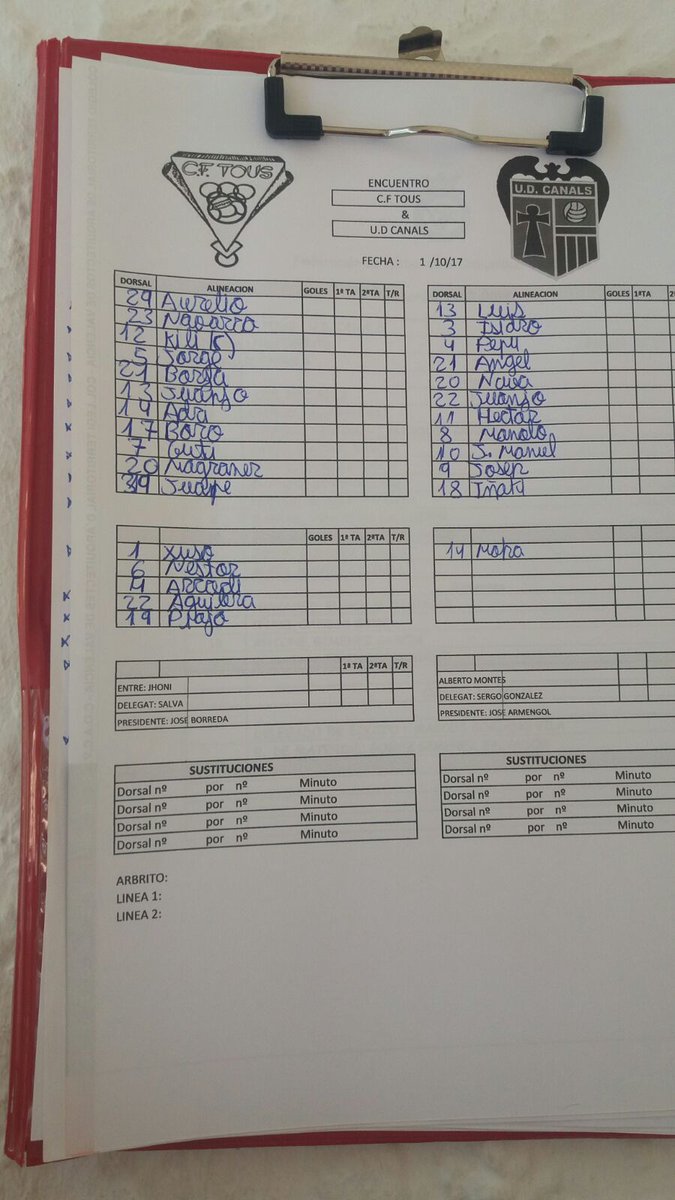 C.F. TOUS
ENCUENTRO
C.F TOUS
&
U.D CANALS
U.D. CANALS
FECHA : 1 /10/17
DORSAL ALINEACION GOLES 1ª TA 2ªTA T/R
29 Aurelio
23 Navarro
12 Kili (C)
5 Jorge
21 Borja
13 Juanjo
14 Adri
17 Boro
7 Guti
20 Magraner
Juanpe
DORSAL ALINEACION GOLES 1ªTA
13 Luis
3 Isidro
4 Pepu
21 Angel
20 Nava
22 Juanjo
11 Hector
8 Manolo
10 J. Manuel
9 Josep
18 Iñaki
GOLES 1ª TA 2ªTA T/R
1 Xuso
6 Nestor
4 Arcadi
22 Aguilera
19
14 Mora
1ª TA 2ªTA T/R
ENTRE: JHONI
DELEGAT: SALVA
PRESIDENTE: JOSE BORREDA
ALBERTO MONTES
DELEGAT: SERGO GONZALEZ
PRESIDENTE: JOSE ARMENGOL
SUSTITUCIONES
Dorsal nº por nº Minuto
Dorsal nº por nº Minuto
Dorsal nº por nº Minuto
Dorsal nº por nº Minuto
SUSTITUCIONES
Dorsal nº por nº Minuto
Dorsal nº por nº Minuto
Dorsal nº por nº Minuto
Dorsal nº por nº Minuto
ARBRITO:
LINEA 1:
LINEA 2: